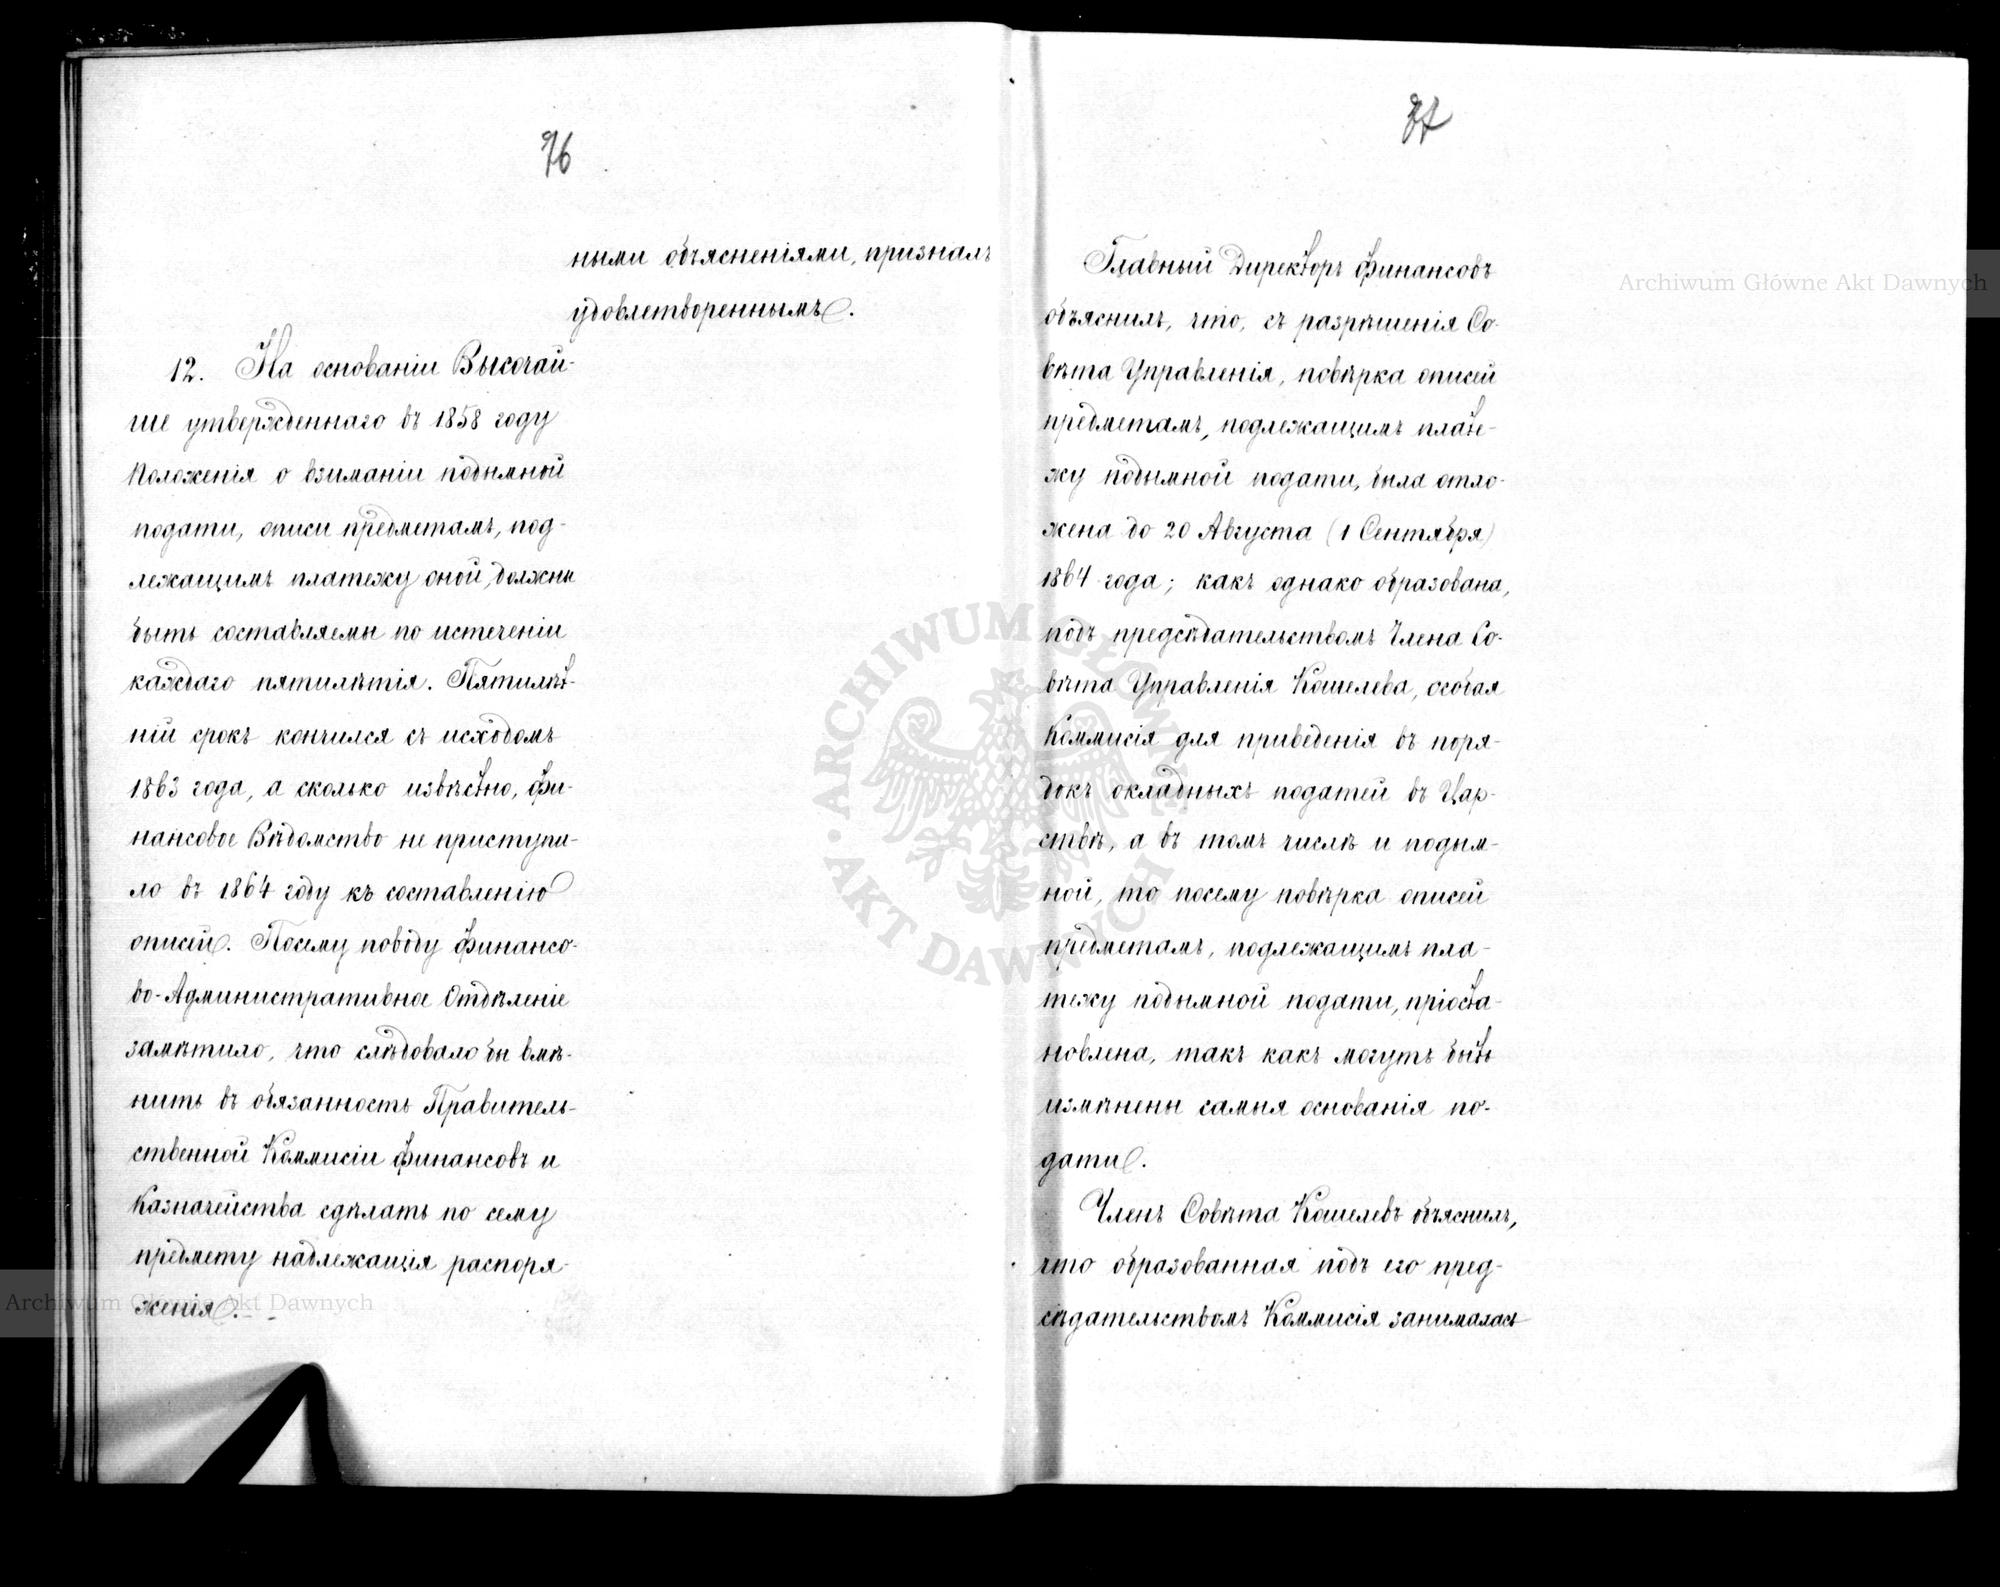 76
ными объясненіями, призналъ
удовлетвореннымъ.
12. На основаніи Высочай-
ше утвержденнаго въ 1858 году
Положенія о взиманіи подымной
подати, описи предметамъ, под-
лежащимъ платежу оной, должны
быть составляемы по истеченіи
каждаго пятилѣтія. Пятилѣт-
ній срокъ кончился съ исходомъ
1863 года, а сколько извѣстно, Фи-
нансовое Вѣдомство не приступи-
ло въ 1864 году къ составленію
описей. Посему поводу Финансо-
во-Административное Отдѣленіе
замѣтило, что слѣдовало бы вмѣ-
нить въ обязанность Правитель-
ственной Коммисіи Финансовъ и
Казначейства сдѣлать по сему
предмету надлежащія распоря-
женія.
Главный Директоръ Финансовъ
объяснилъ, что, съ разрѣшенія Со-
вѣта Управленія, повѣрка описей
предметамъ, подлежащимъ плате-
жу подымной подати, была отло-
жена до 20 Августа (1 Сентября)
1864 года; какъ однако образована,
подъ предсѣдательствомъ Члена Со-
вѣта Управленія Кошелева, особая
Коммисія для приведенія въ поря-
докъ окладныхъ податей въ Цар-
ствѣ, а въ томъ числѣ и подым-
ной, то посему повѣрка описей
предметамъ, подлежащимъ пла-
тежу подымной подати, пріоста-
новлена, такъ какъ могутъ быть
измѣнены самыя основанія по-
дати.
Членъ Совѣта Кошелевъ объяснилъ,
что образованная подъ его пред-
сѣдательствомъ Коммисія занималась
Archiwum Główne Akt Dawnych
Archiwum Główne Akt Dawnych
ARCHIWUM GŁÓWNE AKT DAWNYCH